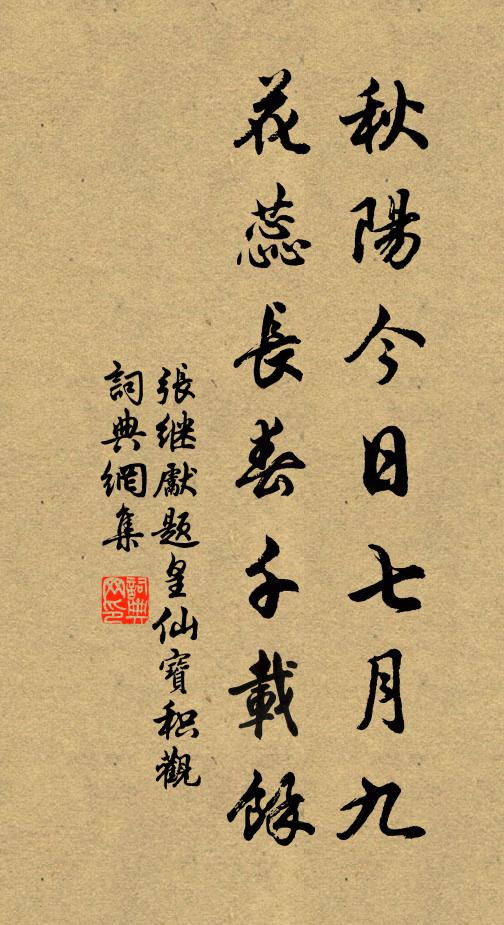 秋陽今日七月九
花蕊長春千載餘
張继獻题皇仙寶积觀
詞典網集
詞典网印